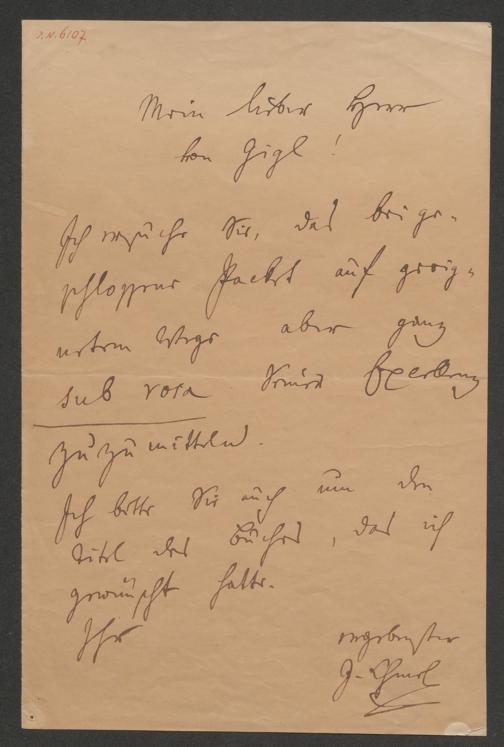 J.N. 6107
Mein lieber Herr
von Gigl!
Ich ersuche Sie, das beige-
schlossene Packet auf geeig-
netem Wege aber ganz
sub rosa Seiner Excellenz
zuzumitteln.
Ich bitte Sie auch um den
Titel des Buches, das ich
gewünscht hatte.
Ihr ergebenster